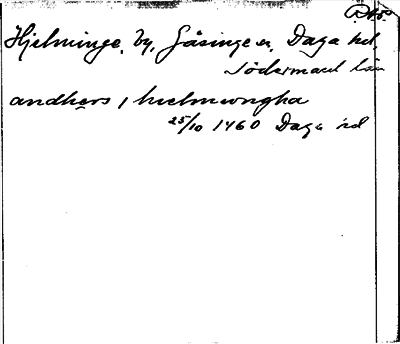 Hjelminge, by, Gåsinge sn, Daga hd,
Södermanl län
andhers i hielmungha
25/10 1460 Daga hd